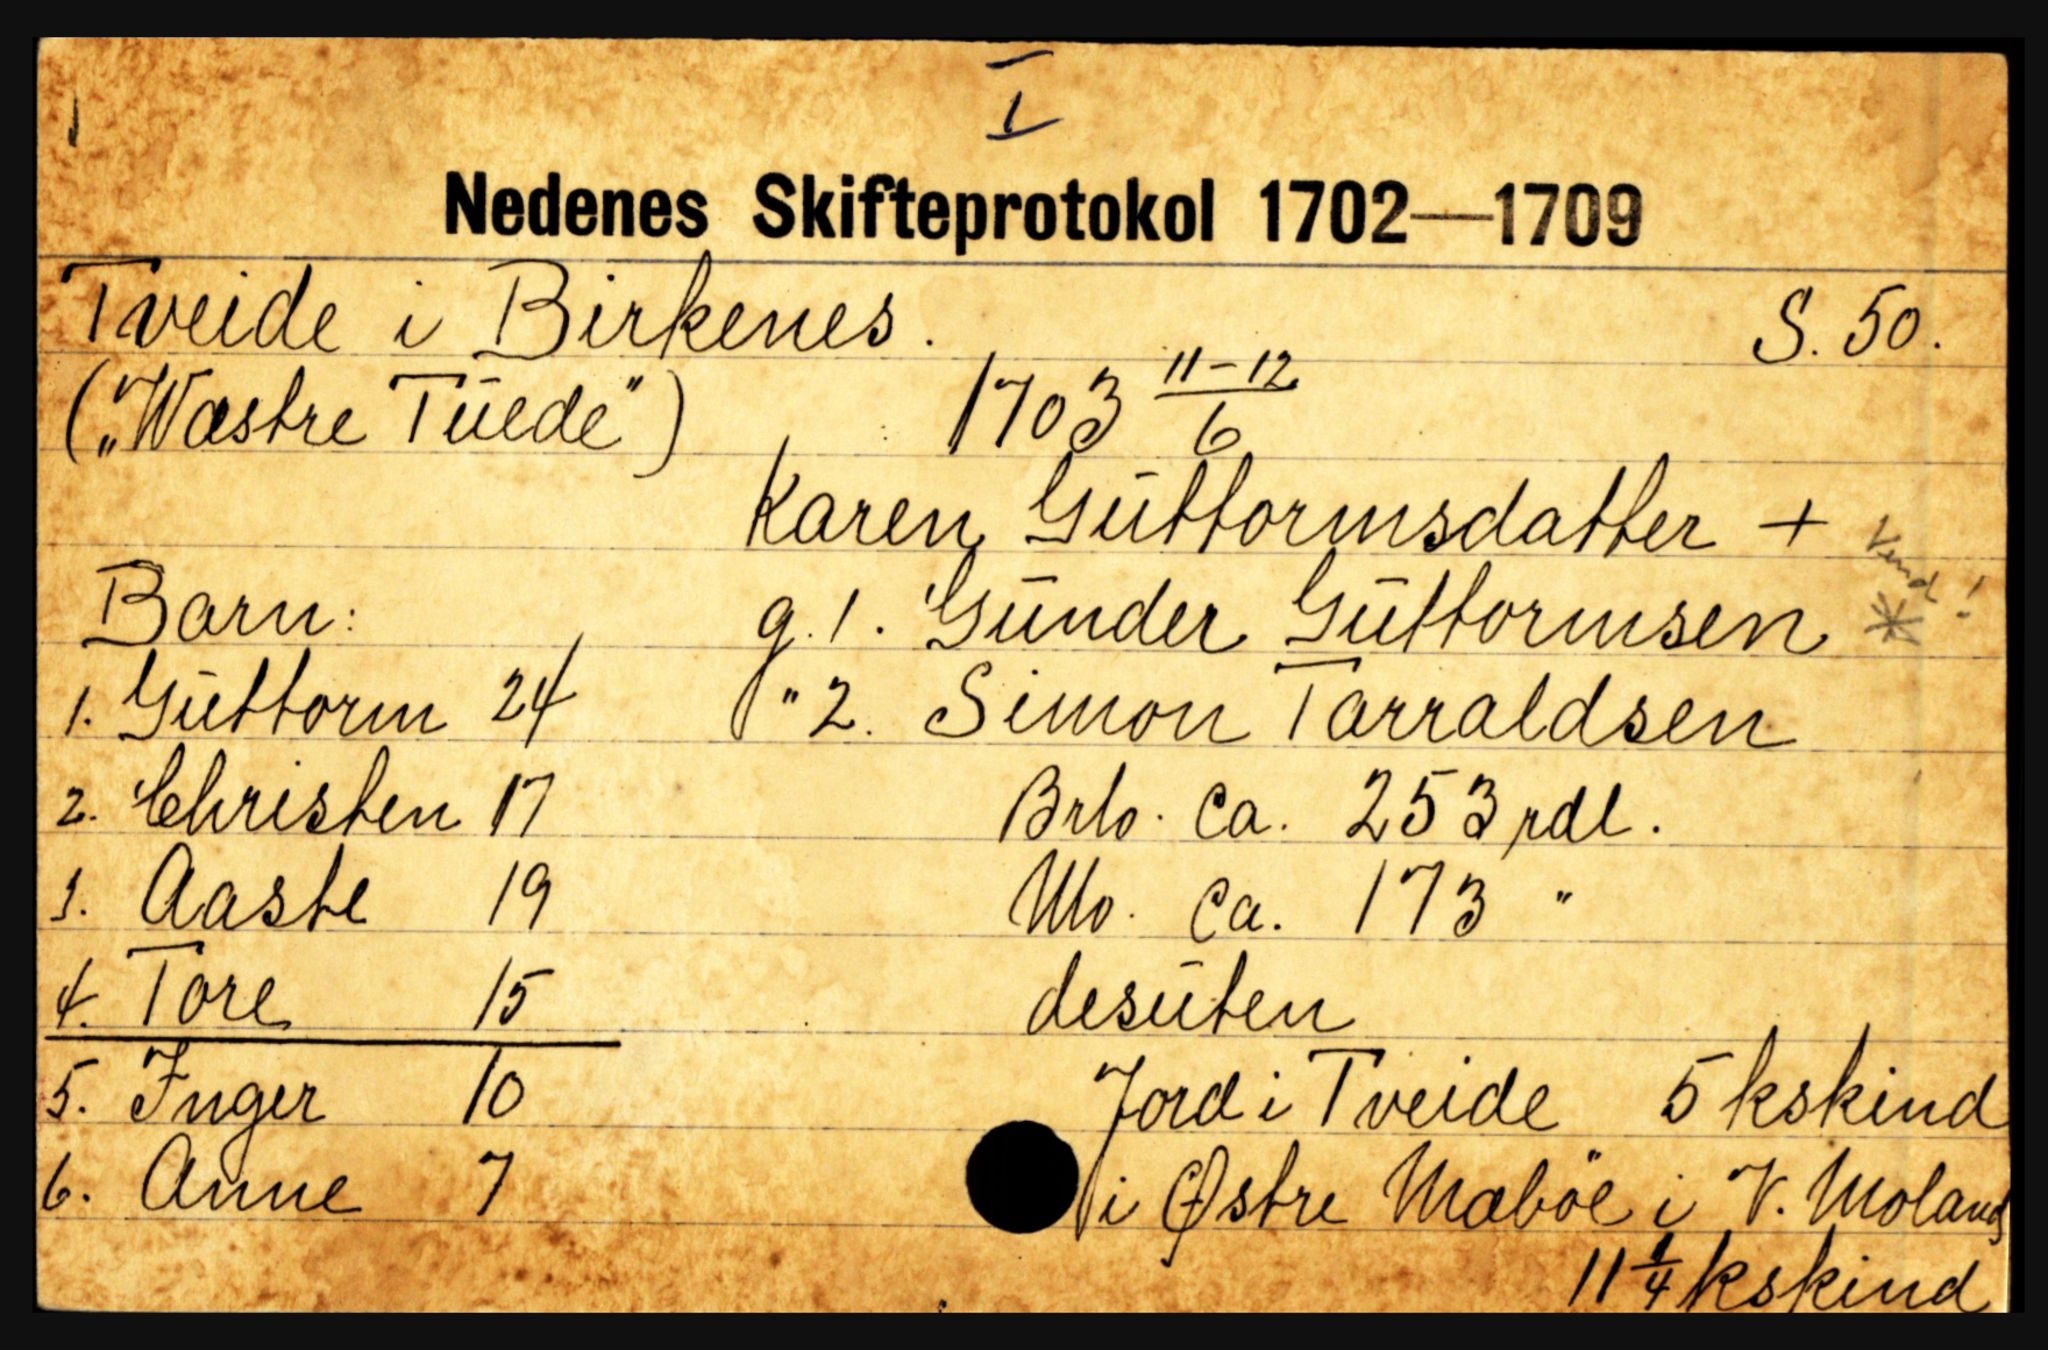 I
Nedenes Skifteprotokol 1702—1709
Tveide i Birkenes. S. 50.
(„Wæstre Tüede") 1703 11-12/6
Karen Güttormsdatter +
Vend!
Barn: g. 1. Günder Güttormsen *
1. Güttorm 24 " 2. Simon Tarraldsen
2. Christen 17 Brto. ca. 253 rdl.
3. Aaste 19 Nto. ca. 173 "
4. Tore 15 desüten
5. Inger 10 Jord i Tveide 5 kskind
6. Anne 7 i Østre Mæböe i V. Moland
11 1/4 kskind